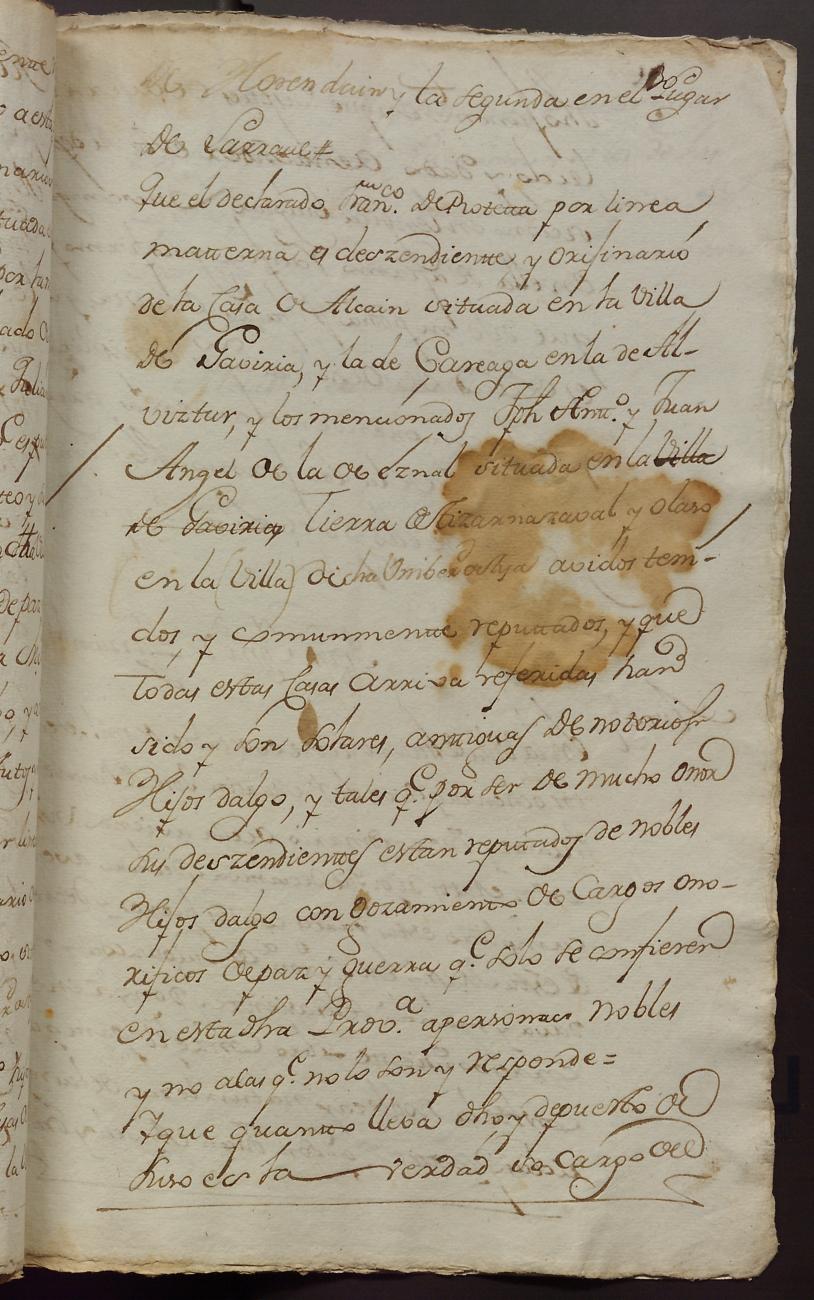 de Morendain y la segunda en el Lugar
de Larraul #
Que el declarado Franco. de Roteta por linea
matterna es deszendientte y orijinario
de la Casa de Alcain situada en la Villa
de Gaviria, y la de Careaga en la de Al-
viztur, y los mencionados Jph Antto. y Juan
Angel de la de Eznal situada en la Villa
de Gaviria Tierra de y olaso
en la (Villa) dicha avidos teni-
dos, y comunmentte reputtados, y que
Todas estas Casas arriva referidas han
sido y son solares, antiguas de notorios
Hijos dalgo, y tales q.e por ser de mucho onor
sus deszendienttes estan reputtados de nobles
Hijos dalgo con gozamientto de Cargos ono-
rificos de paz y guerra q.e solo se confieren
en esta dha Prov.a a personas nobles
y no a las q.e no lo son y responde=
Y que quantto lleva dho y depuesto de
suso es la verdad so cargo del